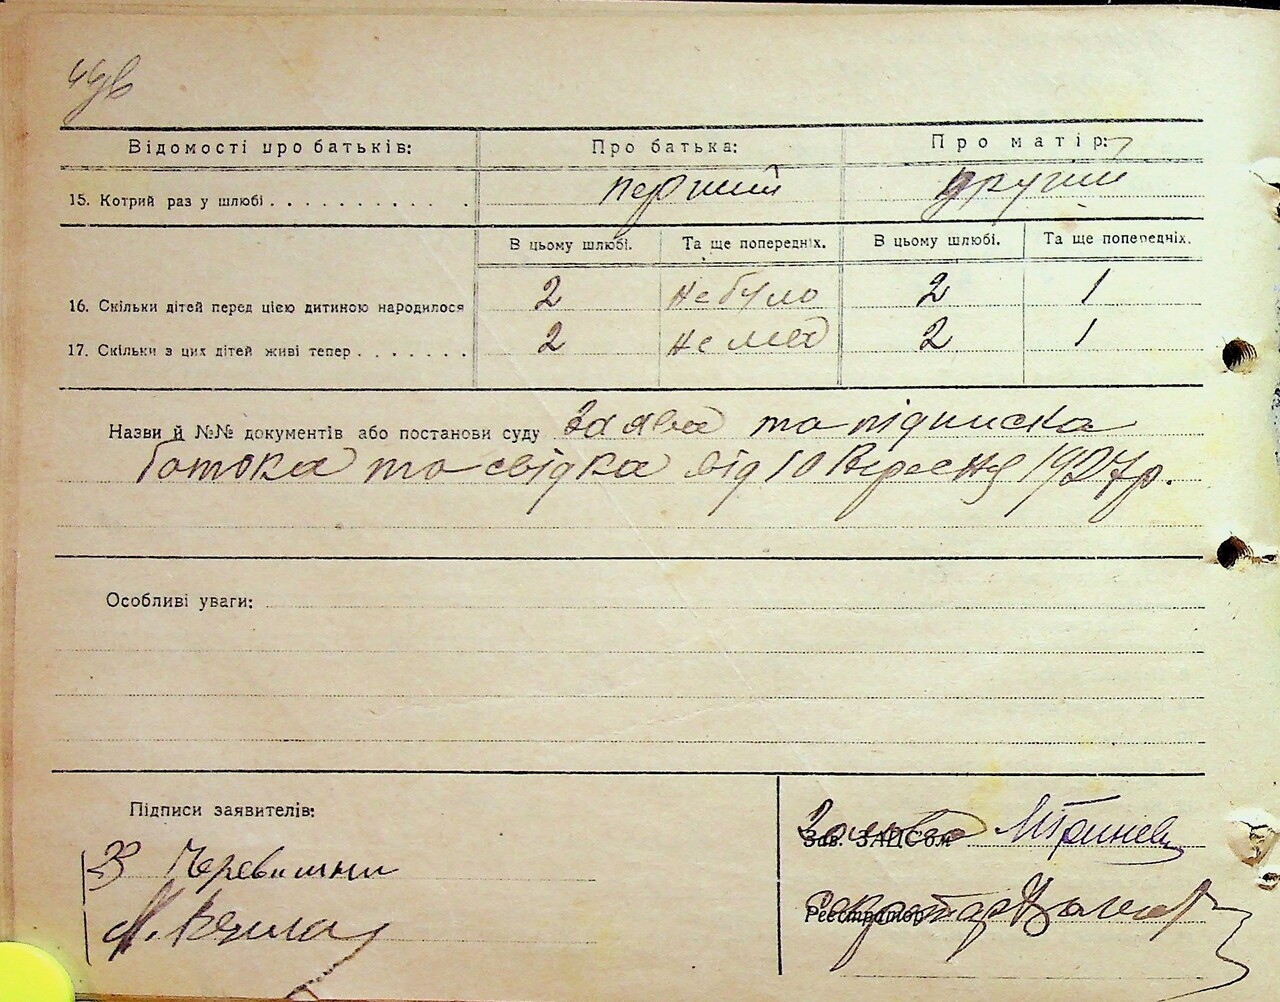 Відомості про батьків:
Про батька:
Про матір:
15. Котрий раз у шлюбі
перший
другий
В цьому шлюбі.
Та ще попередніх.
В цьому шлюбі.
Та ще попередніх.
16. Скільки дітей перед цією дитиною народилося
2
не було
2
1
17. Скільки з цих дітей живі тепер
2
немає
2
1
Назви й №№ документів або постанови суду Заява та підписка
батька та свідка від 10 Вересня 1927 р.
Особливі уваги:
Підписи заявителів:
Зав. ЗАЦС'ом
Голова
Реєстратор
Секретар